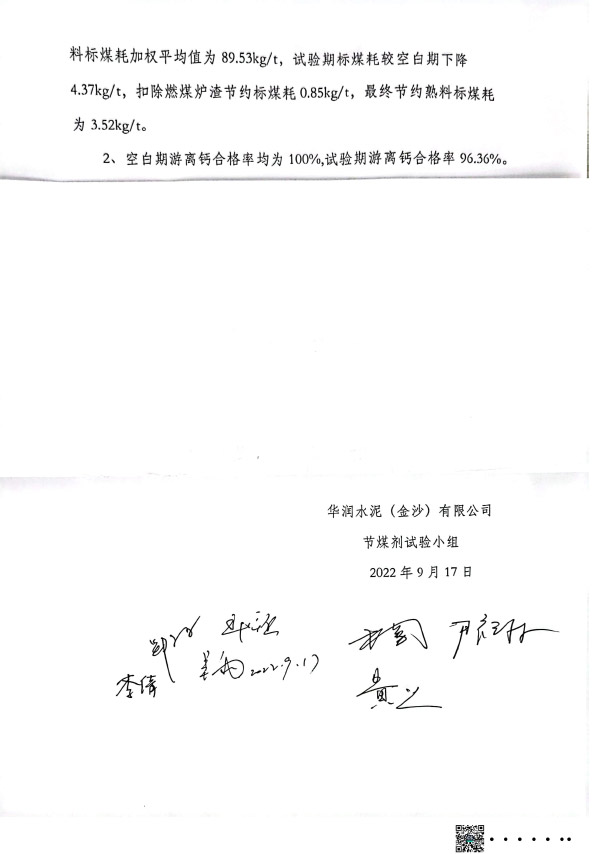 料标煤耗加权平均值为 89.53kg/t，试验期标煤耗较空白期下降
4.37kg/t，扣除燃煤炉渣节约标煤耗 0.85kg/t，最终节约熟料标煤耗
为 3.52kg/t。
2、空白期游离钙合格率均为 100%,试验期游离钙合格率 96.36%。
华润水泥（金沙）有限公司
节煤剂试验小组
2022 年 9 月 17 日
2022.9.17
李倩